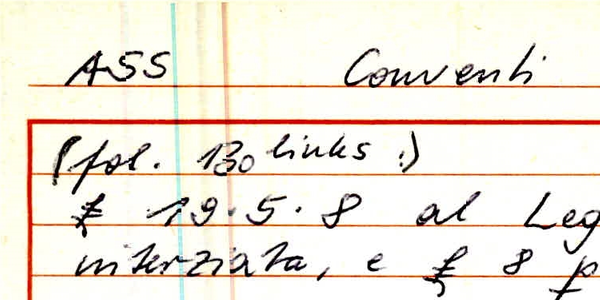 ASS Conventi
(fol. 130 links :)
£ 19.5.8 al Leg
interziata, e £ 8 p